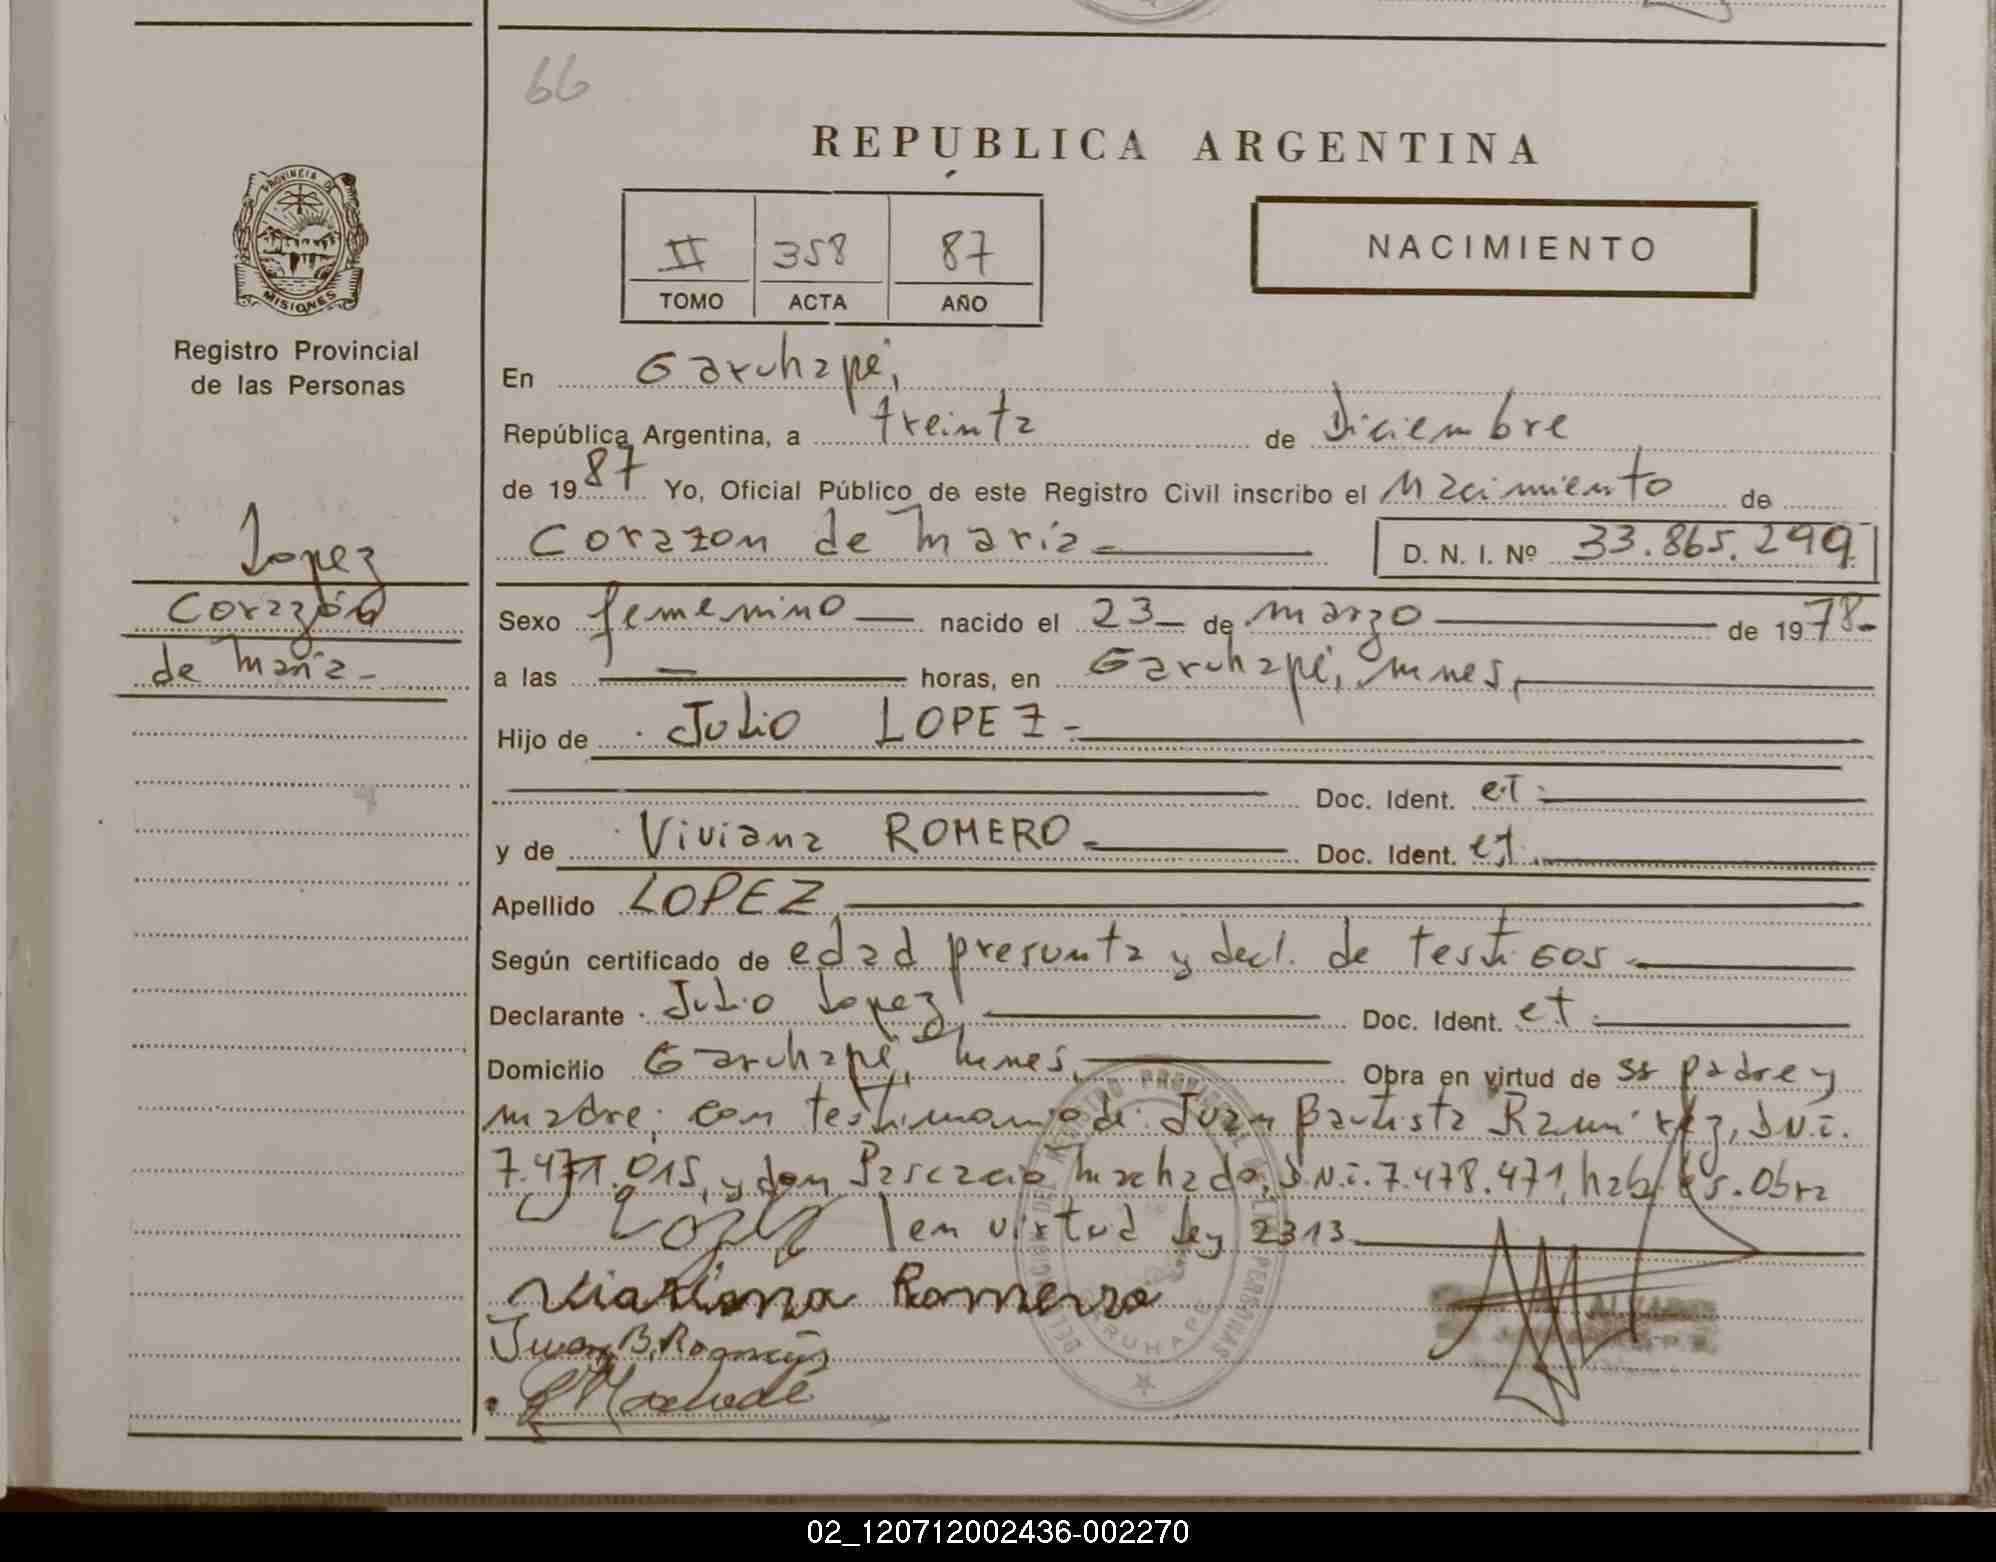 66
REPUBLICA ARGENTINA
PROVINCIA DE
MISIONES
Registro Provincial
de las Personas
II 358 87
TOMO ACTA AÑO
NACIMIENTO
En Garuhapé,
República Argentina, a treinta de Diciembre
de 1987 Yo, Oficial Público de este Registro Civil inscribo el Nacimiento de
Corazon de Maria - D. N. I. Nº 33.865.299
Lopez
Corazón
de Maria -
Sexo femenino nacido el 23 de marzo de 1978-
a las — horas, en Garuhapé, Mnes,
Hijo de Julio LOPEZ -
Doc. Ident. et.
y de Viviana ROMERO - Doc. Ident. et.
Apellido LOPEZ
Según certificado de edad presunta y decl. de testigos -
Declarante Julio Lopez, Doc. Ident. et.
Domicilio Garuhapé, Mnes, Obra en virtud de ss padre y
madre; con testimonio de: Juan Bautista Ramirez, D.N.i.
7.471.015, y don Pascacio Machado, D.N.i. 7.478.471, habiles. Obra
Lopez en virtud Ley 2313
Romero
Juan B.
Machado
GARUHAPE
02_120712002436-002270